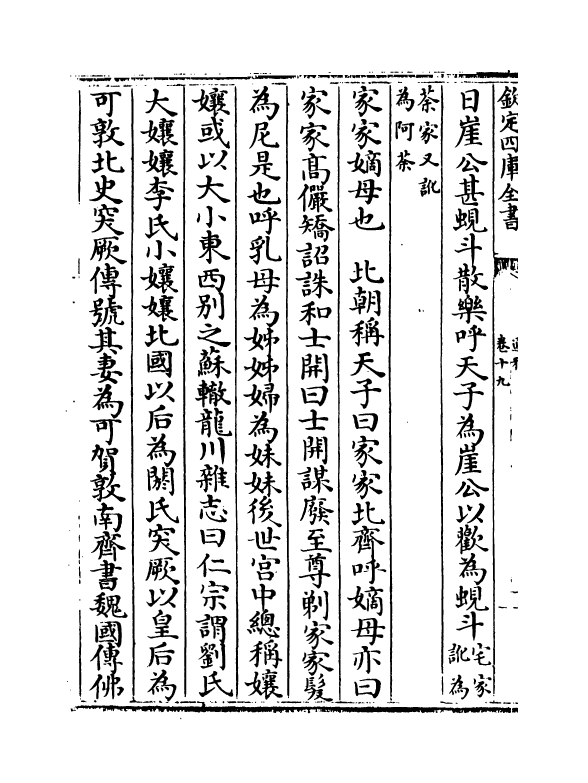 欽定四庫全書
卷十九
曰崖公甚蜆斗散樂呼天子為崖公以歡為蜆斗宅家訛為
茶家又訛為阿茶
家家嫡母也　北朝稱天子曰家家北齊呼嫡母亦曰
家家髙儼矯詔誅和士開曰士開謀廢至尊剃家家髮
為尼是也呼乳母為姊姊婦為妹妹後世宫中總稱孃
孃或以大小東西别之蘇轍龍川雜志曰仁宗謂劉氏
大孃孃李氏小孃孃北國以后為閼氏突厥以皇后為
可敦北史突厥傳號其妻為可賀敦南齊書魏國傳佛